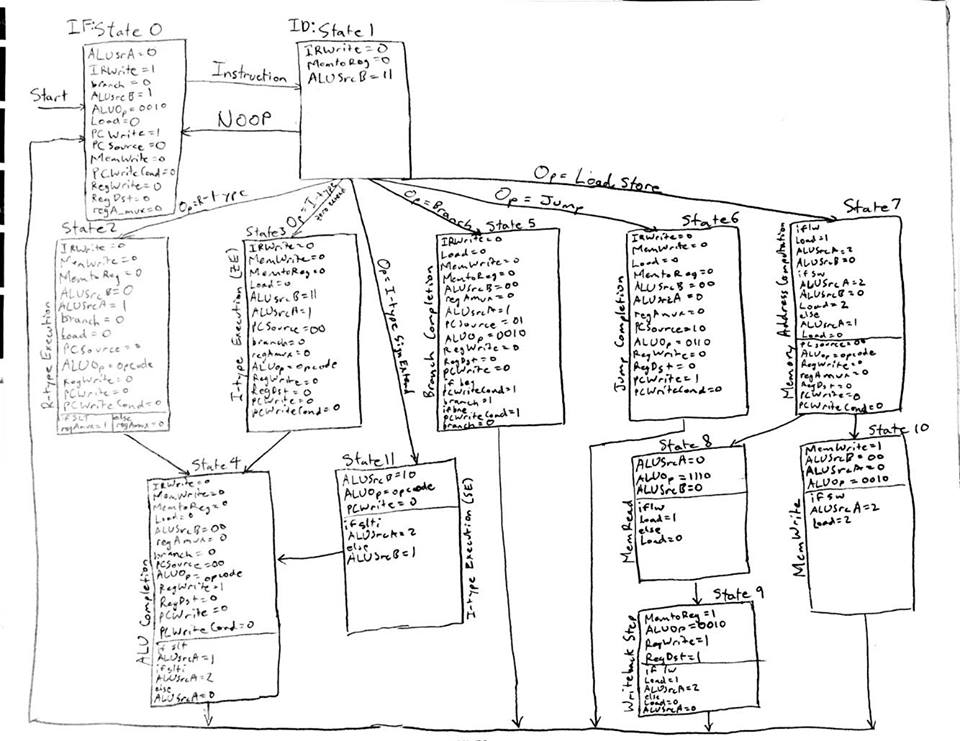 IF: State 0
ALUSrcA=0
IRWrite=1
branch=0
ALUSrcB=1
ALUOp=0010
Load=0
PCWrite=1
PCSource=0
MemWrite=0
PCWriteCond=0
RegWrite=0
RegDst=0
regA_mux=0
Start
Instruction
NOOP
ID: State 1
IRWrite=0
MemtoReg=0
ALUSrcB=11
Op=R-type
Op=I-type
zero extend
Op=I-type sign Extend
Op=Branch
Op=Jump
Op=Load, Store
State2
R-type Execution
IRWrite=0
MemWrite=0
MemtoReg=0
ALUSrcB=0
ALUSrcA=1
branch=0
Load=0
PCSource=0
ALUOp=opcode
RegWrite=0
PCWrite=0
PCWriteCond=0
if SLT
regAmux=1
else
regAmux=0
State3
I-type Execution (ZE)
IRWrite=0
MemWrite=0
MemtoReg=0
Load=0
ALUSrcB=11
ALUSrcA=1
PCSource=00
branch=0
regAmux=0
ALUOp=opcode
RegWrite=0
RegDst=0
PCWrite=0
PCWriteCond=0
State 5
Branch Completion
IRWrite=0
Load=0
MemWrite=0
MemtoReg=0
ALUSrcB=00
regAmux=0
ALUSrcA=1
PCSource=01
ALUOp=0010
RegWrite=0
RegDst=0
PCWrite=0
if beq
PCWriteCond=1
branch=1
if bne
PCWriteCond=1
branch=0
State6
Jump Completion
IRWrite=0
MemWrite=0
Load=0
MemtoReg=0
ALUSrcB=00
ALUSrcA=0
regAmux=0
PCSource=10
ALUOp=0110
RegWrite=0
RegDst=0
PCWrite=1
PCWriteCond=0
State 7
Memory Address Computation
if lw
Load=1
ALUSrcA=2
ALUSrcB=0
if sw
ALUSrcA=2
ALUSrcB=0
Load=2
else
ALUSrcA=1
Load=0
PCSource=00
ALUOp=opcode
RegWrite=0
regAmux=0
RegDst=0
PCWrite=0
PCWriteCond=0
State 4
ALU Completion
IRWrite=0
MemWrite=0
MemtoReg=0
Load=0
ALUSrcB=00
regAmux=0
branch=0
PCSource=00
ALUOp=opcode
RegWrite=1
RegDst=0
PCWrite=0
PCWriteCond=0
if slt
ALUSrcA=1
if slti
ALUSrcA=2
else
ALUSrcA=0
State 11
I-type Execution (SE)
ALUSrcB=10
ALUOp=opcode
PCWrite=0
if slti
ALUSrcA=2
else
ALUSrcB=1
State 8
MemRead
ALUSrcA=0
ALUOp=1110
ALUSrcB=0
if lw
Load=1
else
Load=0
State 10
MemWrite
MemWrite=1
ALUSrcB=00
ALUSrcA=0
ALUOp=0010
if sw
ALUSrcA=2
Load=2
State 9
Writeback Step
MemtoReg=1
ALUOp=0010
RegWrite=1
RegDst=1
if lw
Load=1
ALUSrcA=2
else
Load=0
ALUSrcA=0